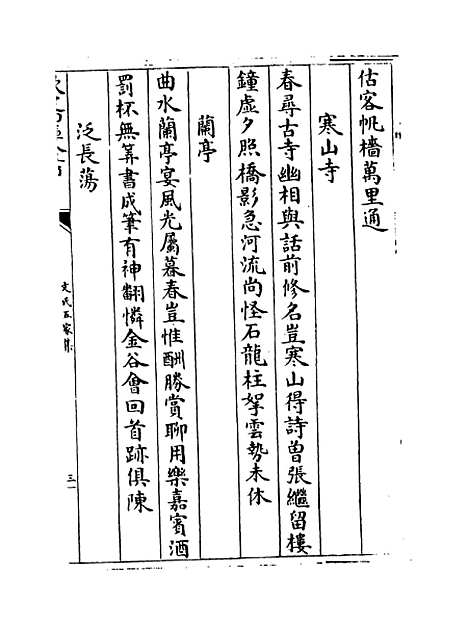 估客帆檣萬里通
寒山寺
春尋古寺幽相與話前修名豈寒山得詩曽張繼留樓
鐘虚夕照橋影急河流尚怪石龍柱拏雲勢未休
蘭亭
曲水蘭亭宴風光屬暮春豈惟酬勝賞聊用樂嘉賓酒
罰杯無筭書成筆有神翻憐金谷會回首跡俱陳
泛長蕩
文氏五家集